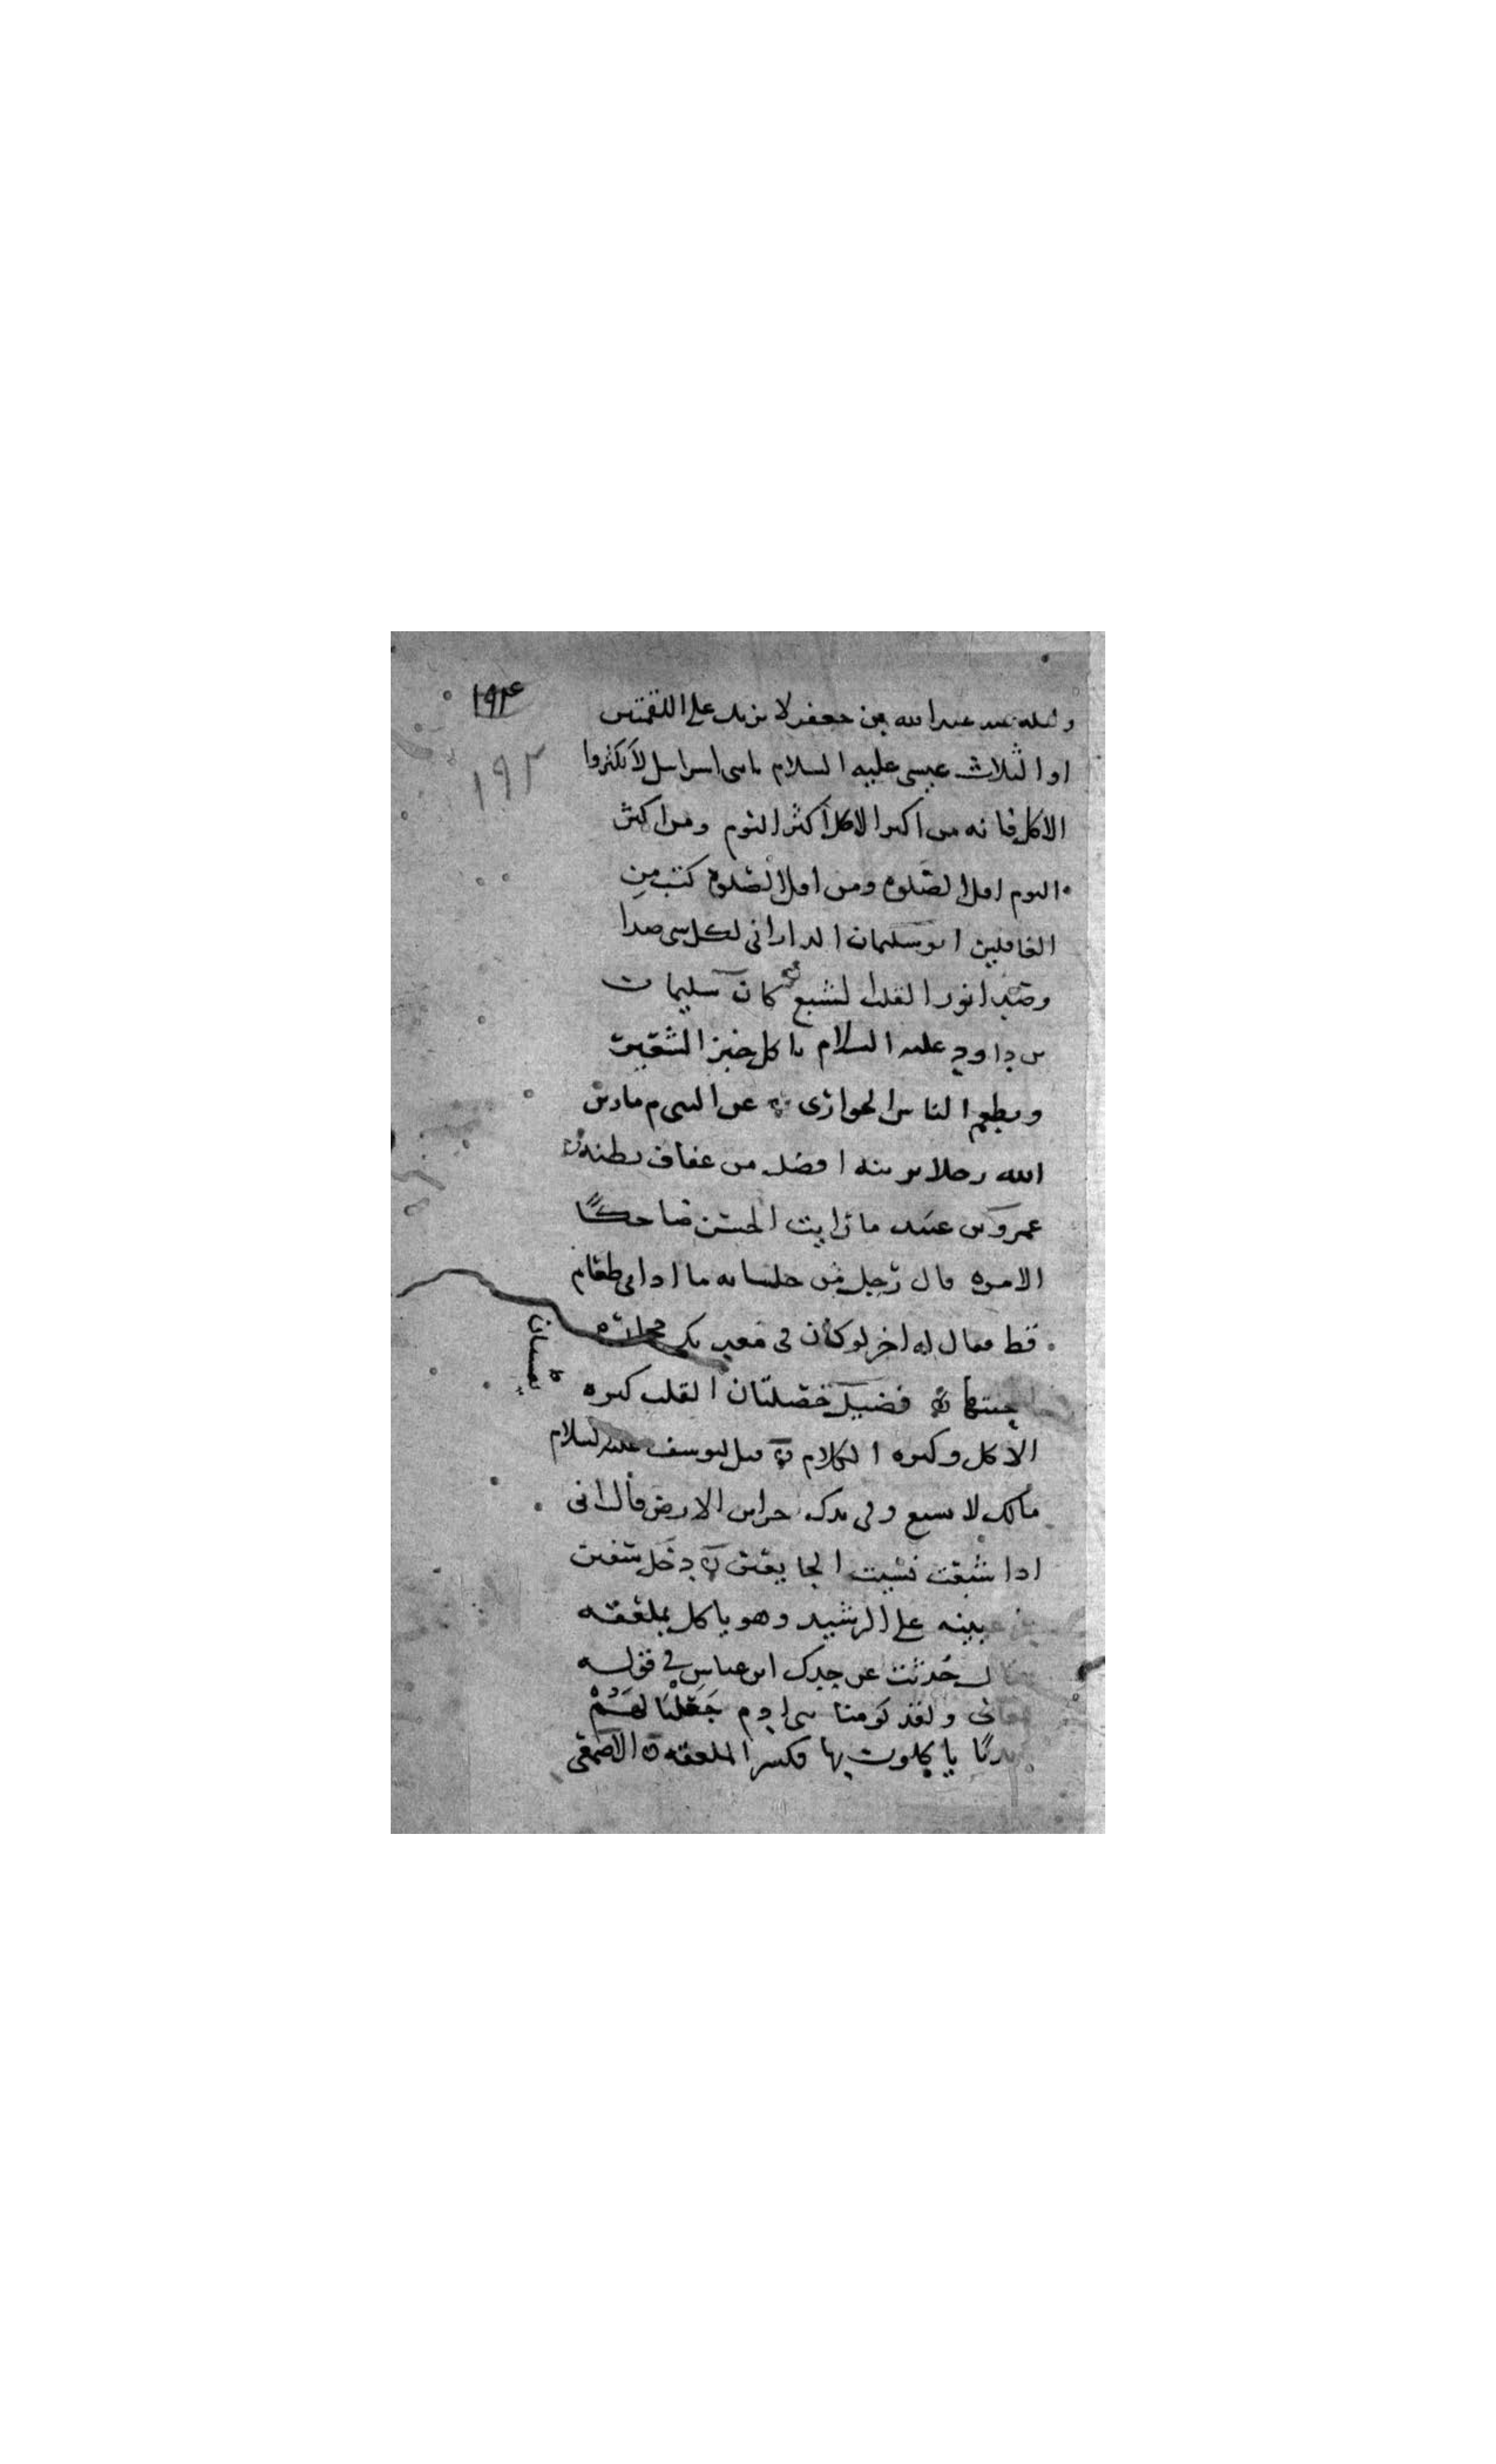 ١٩٤
١٩٢
وليله عند عبد الله بن جعفر لا يزيد على اللقمتين
او الثلاث عيسى عليه السلام يا بني اسرائيل لا تكثروا
الاكل فانه من اكثر الاكل اكثر النوم ومن اكثر
النوم اقل الصلوة ومن اقل الصلوة كتب من
الغافلين ابو سليمان الداراني لكل شي صدا
وصدا نور القلب الشبع كان سليمان
بن داود عليه السلام ياكل خبز الشعير
ويطعم الناس الحوارى عن النبي م ما زين
الله رجلا بزينة افضل من عفاف بطنه
عمرو بن عبيد ما رايت الحسن ضاحكا
الا مرة قال رجل من جلسائه ما اذاني طعام
قط فقال له اخر لو كان في معدتك حجارة
لطحنتها فضيل خصلتان القلب كثرة
يقسيان
الاكل وكثرة الكلام قيل ليوسف عليه السلام
مالك لا تشبع وفي يدك خزاين الارض قال اني
اذا شبعت نسيت الجايعين دخل سفين
بن عيينه على الرشيد وهو ياكل بملعقه
قال حدثت عن جدك ابن عباس في قوله
تعالى ولقد كرمنا بني ادم جعلنا لهم
ايديًا ياكلون بها فكسر الملعقه الاصمعي